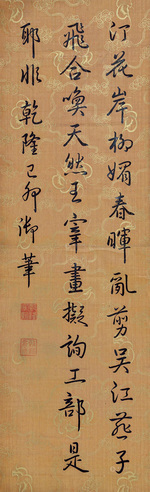 汀花岸柳媚春暉亂剪吳江燕子
飛合喚天然王宰畫擬詢工部是
耶非 乾隆己卯御筆